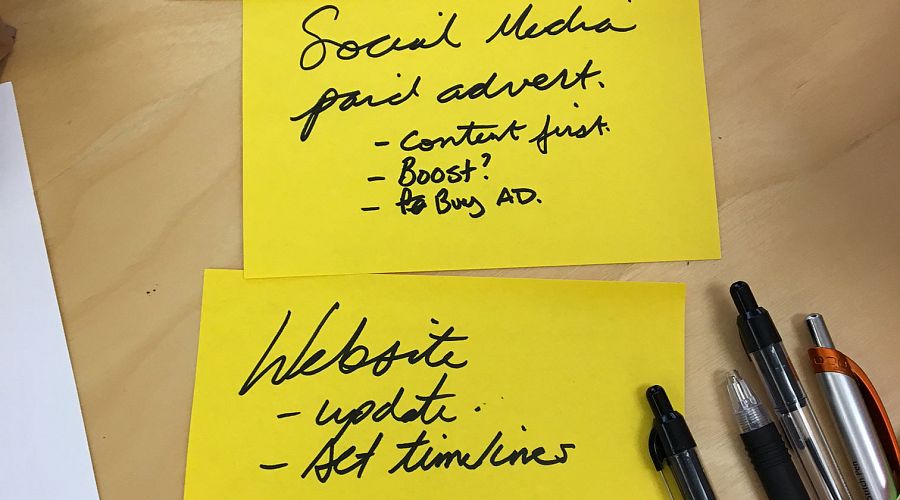 Social Media
paid advert.
- Content first.
- Boost?
- Buy AD.
Website
- update.
- Set timelines